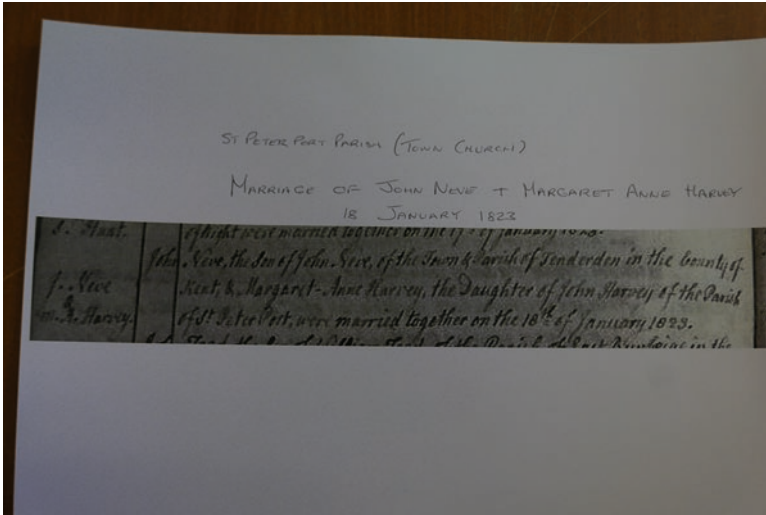 ST PETER PORT PARISH (TOWN CHURCH)
MARRIAGE OF JOHN NEVE + MARGARET ANNE HARVEY
18 JANUARY 1823
Hunt. of Kight were married together on the 17th of January 1823.
John Neve, the Son of John Neve, of the Town & Parish of Tenderden in the County of
J. Neve Kent, & Margaret-Anne Harvey, the Daughter of John Harvey of the Parish
& Harvey. of St. Peter Port, were married together on the 18th of January 1823.
of the Parish of East in the